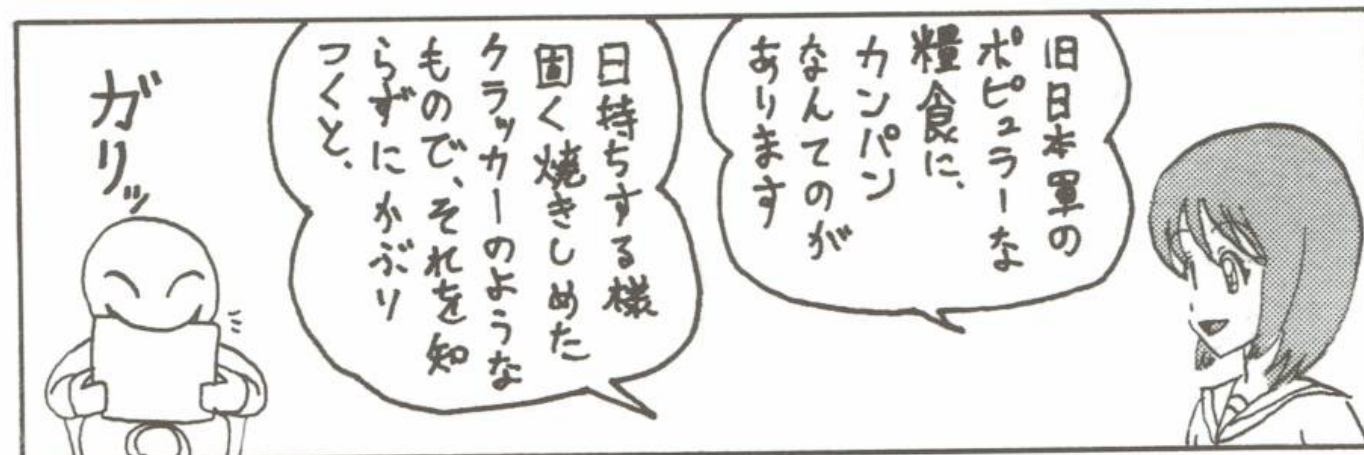 旧日本軍の
ポピュラーな
糧食に、
カンパン
なんてのが
あります
日持ちする様
固く焼きしめた
クラッカーのような
もので、それを知
らずにかぶり
つくと、
ガリッ